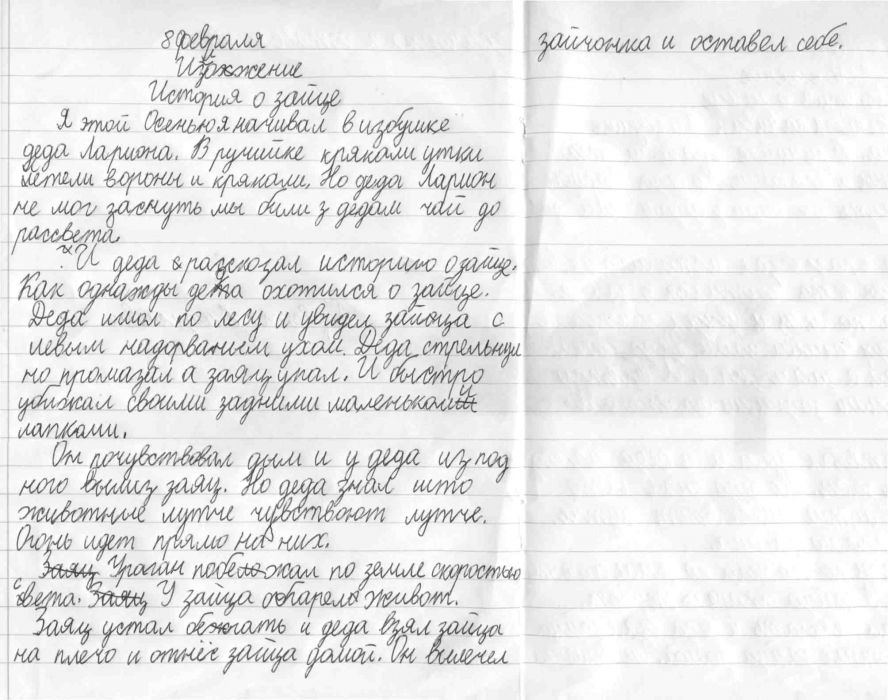 8 февраля
Изожжение
История о зайце
Я этой Осенью я начивал в избушке
деда Лариона. В ручийке крякали утки
летели вороны и крякали. Но деда Ларион
не мог заснуть мы били з дедам чай до
рассвета.
И деда рассказал историю о зайце.
Как однажды деда охотился о зайце.
Деда ишол по лесу и увидел зайца с
левым надорваным ухом. Деда стрельнул
но промазал а заяц упал. И быстро
убижал своими задними маленькими
лапками.
Он почувствовал дым и у деда из под
ног вылиз заяц. Но деда знал што
животные лутче чувствоют лутче.
Огонь идет прямо на них.
Заяц Ураган побежал по земле скоростью
света. Заяц У зайца обпарела живот.
Заяц устал бежать и деда взял зайца
на плечо и отнёс зайца домой. Он вылечел
зайчонка и оставел себе.